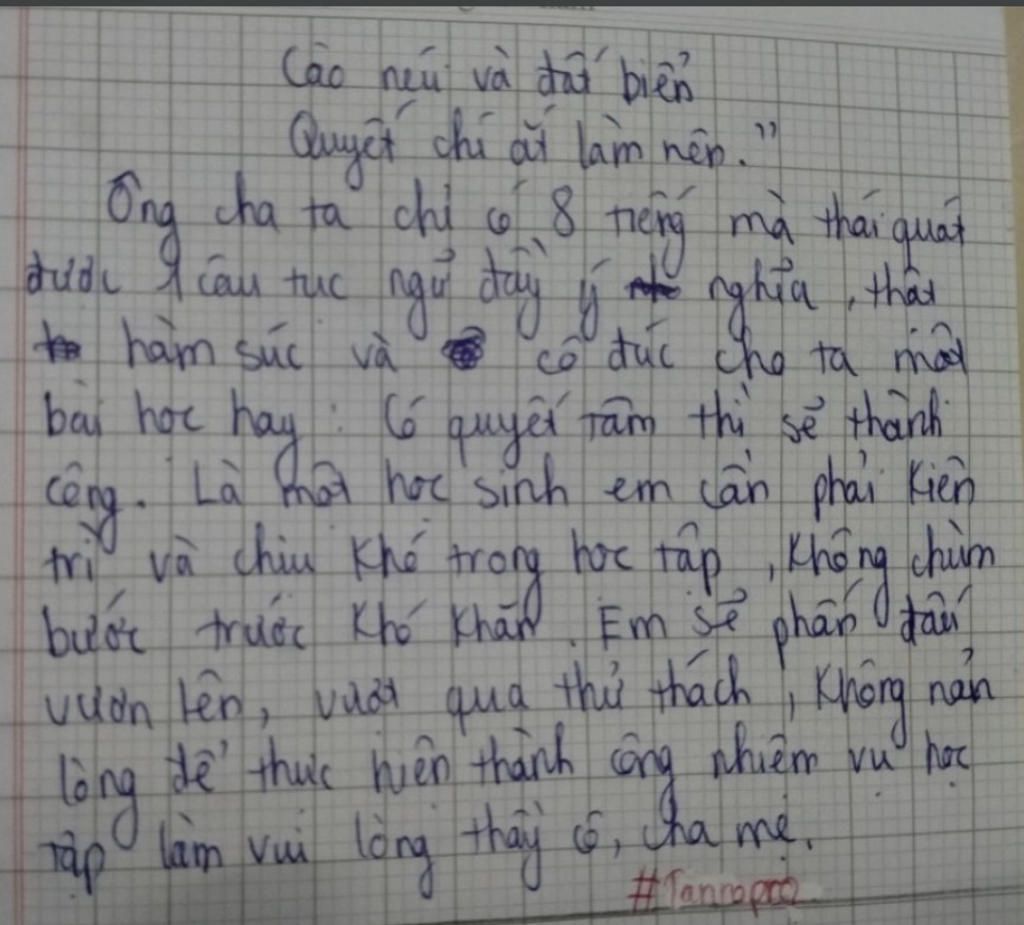 Cào néú và đất biển
Quyết chí ắt làm nên."
Ông cha ta chỉ có 8 tiếng mà thái quát
được 1 câu tục ngữ đầy ý nghĩa, thật
hàm súc và cô đúc cho ta một
bài học hay: Có quyết tâm thì sẽ thành
công. Là một học sinh em cần phải kiên
trì và chịu khó trong học tập, không chùn
bước trước khó khăn. Em sẽ phấn đấu
vươn lên, vượt qua thử thách, không nản
lòng để thực hiện thành công nhiệm vụ học
tập làm vui lòng thầy cô, cha mẹ.